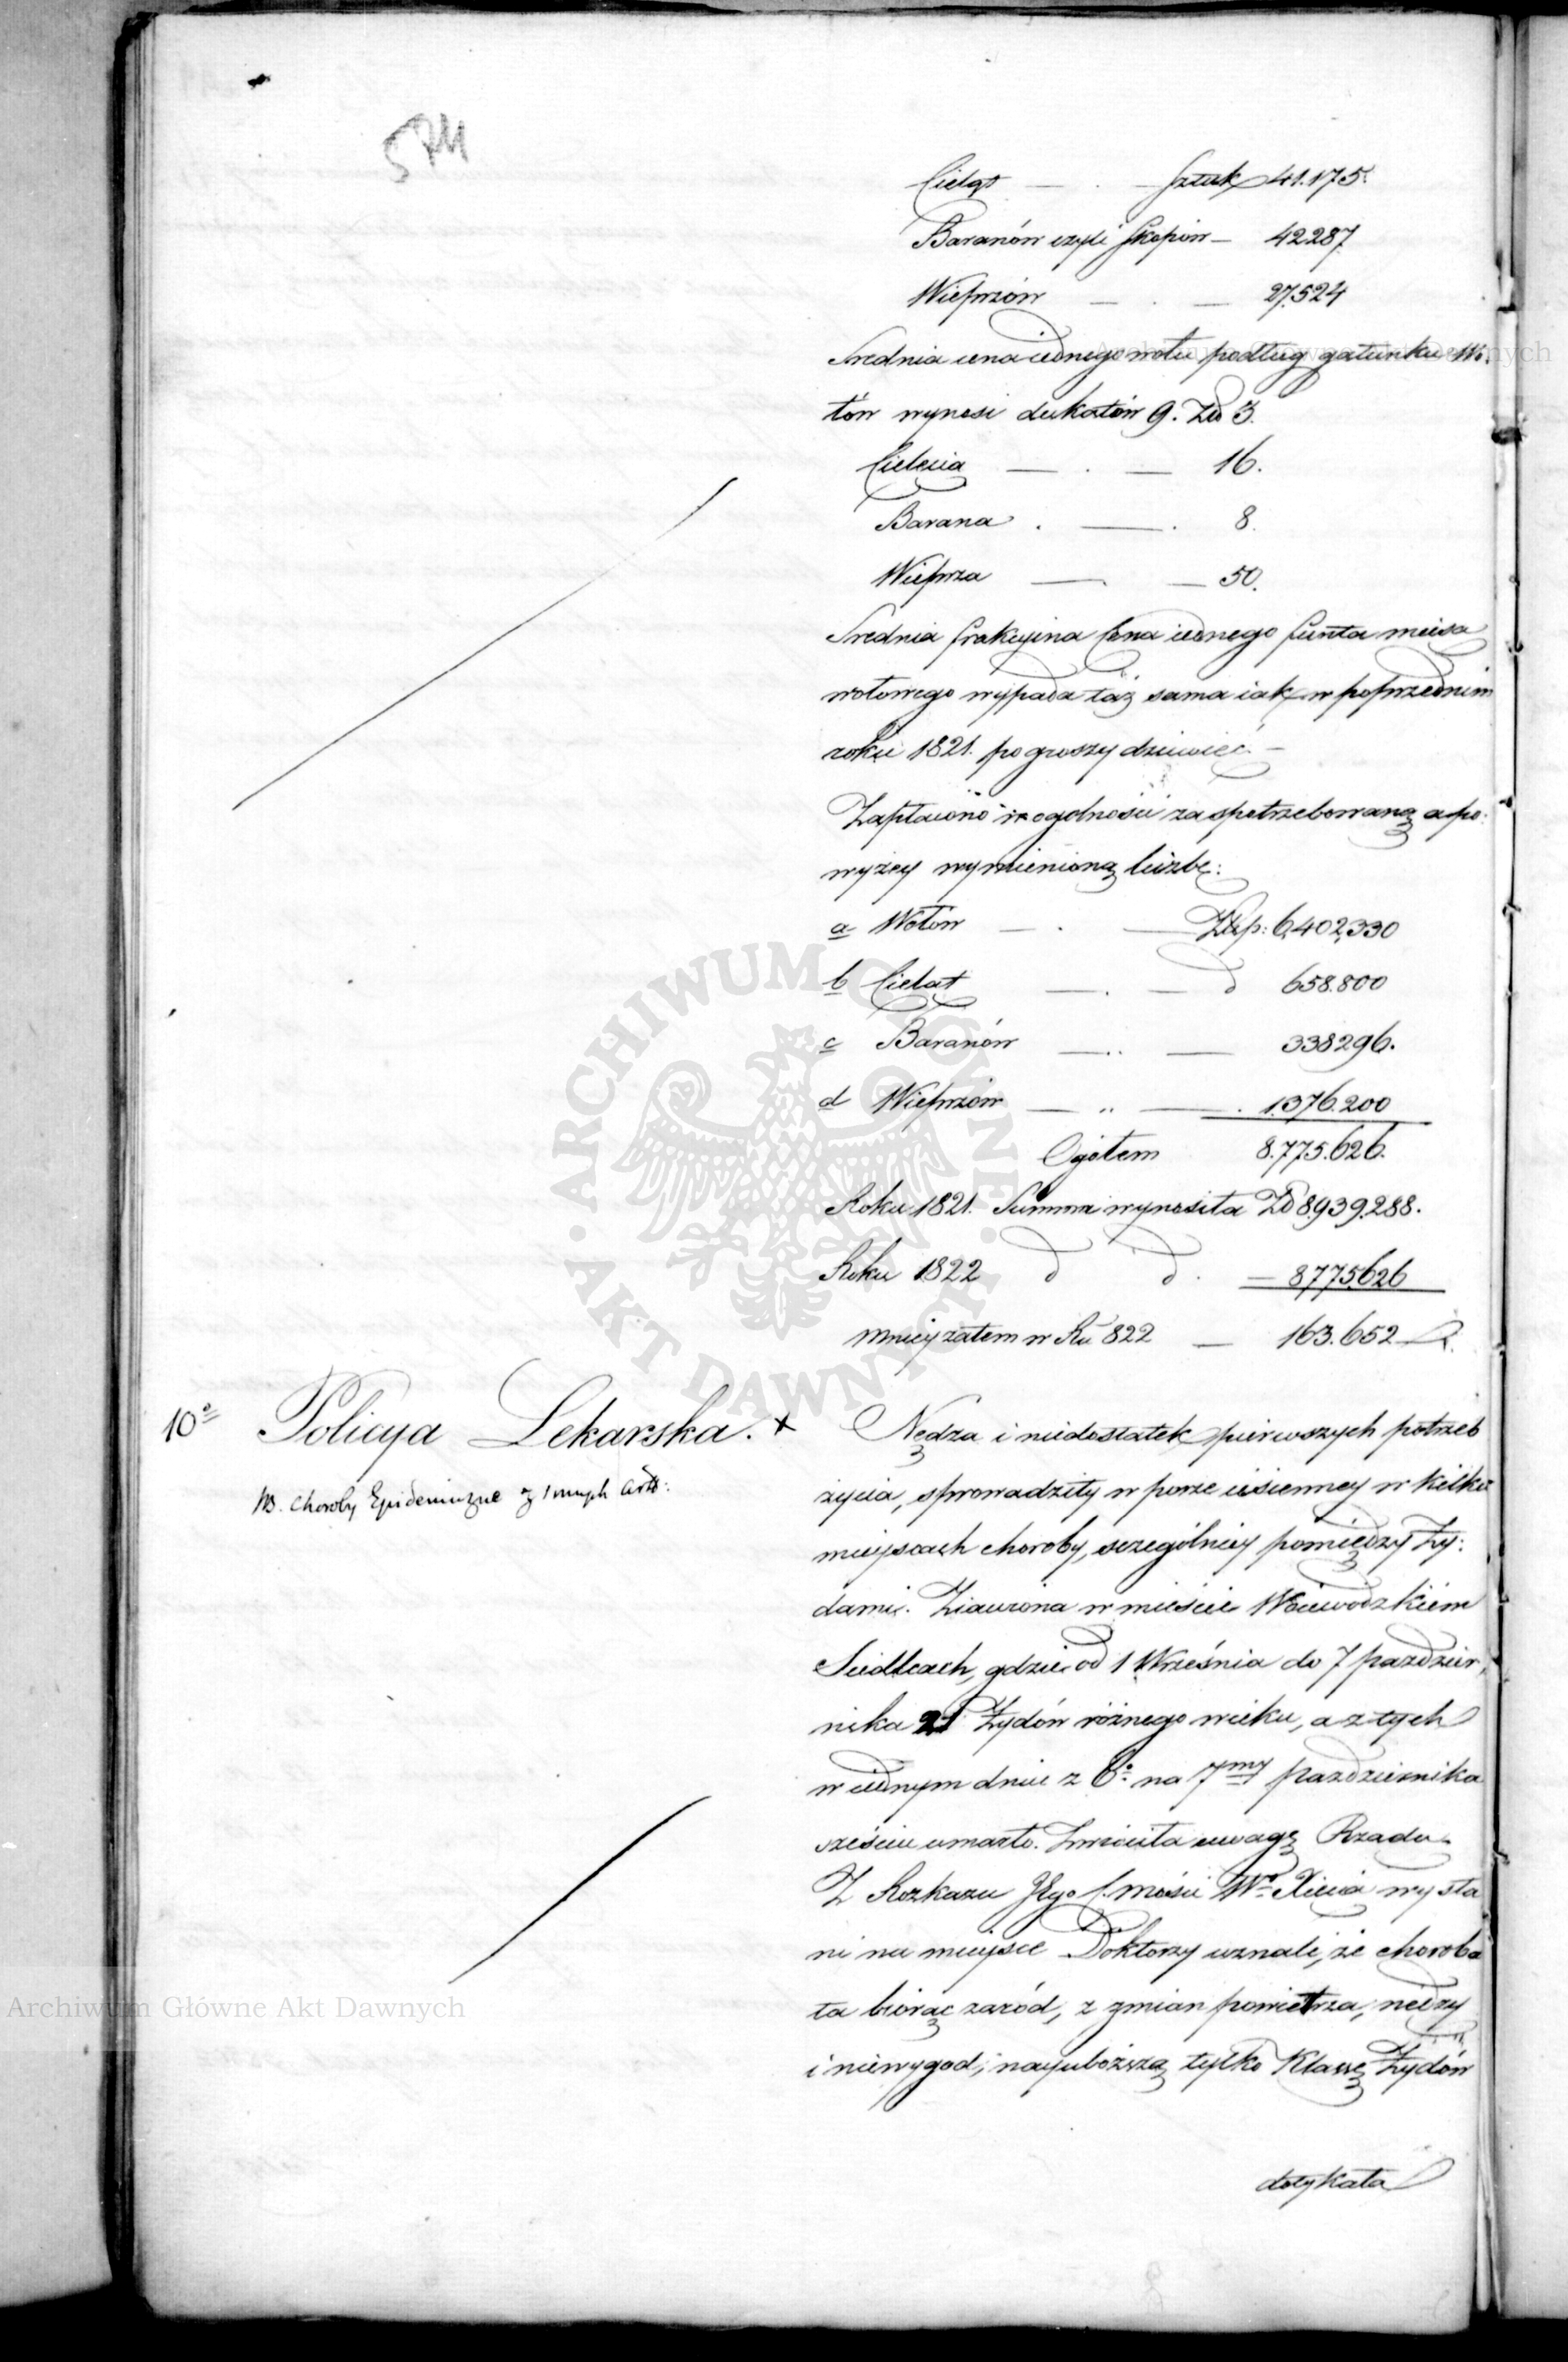 574
Cieląt — . — sztuk 41.175.
Baranów czyli skopów — 42287
Wieprzów — . — 27.524
Srednia cena iednego wołu podług gatunku Wo:
łów wynosi dukatów 9. Zło 3.
Cielęcia — . — 16.
Barana . — . 8.
Wieprza — . — 50.
Srednia frakcyina Cena iednego funta mięsa
wołowego wypada taż sama iak w poprzednim
roku 1821. po groszy dziewięć. —
Zapłacono w ogolności za spotrzebowaną a po:
wyżey wymienioną liczbę:
a Wołów — . — Złp: 6,402,330
b Cieląt — . — d 658.800
c Baranów — .. — 338296.
d Wieprzów — .. — . 1.376.200
Ogołem 8.775.626.
Roku 1821. Summa wynosiła Zło 8.939.288.
Roku 1822 d d . — 8775626
mniey zatem w Ru 822 — 163.652
10e Policya Lekarska. x
NB. Choroby Epidemiczne z innych Artt:
Nędza i niedostatek pierwszych potrzeb
życia, sprowadziły w porze iesienney w kilku
mieyscach choroby, szczególniey pomiędzy Ży:
dami. Ziawiona w mieście Woiewodzkiém
Siedlcach, gdzie od 1 Września do 7 pazdzier,
nika 21 Żydów różnego wieku, a z tych
w iednym dniu z 6o na 7my pazdziernika
sześciu umarło. Zwróciła uwagę Rządu.
Z Rozkazu Jego C. Mości Wo Xięcia wysła
ni na mieysce Doktorzy uznali, że choroba
ta biorąc zaród, z zmian powietrza, nędzy
i niewygod, nayuboższą tylko Klassę Żydów
dotykała
Archiwum Główne Akt Dawnych
ARCHIWUM GŁÓWNE · AKT DAWNYCH ·
Archiwum Główne Akt Dawnych